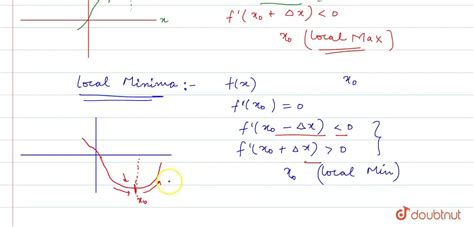 x
f'(x₀ + Δx) < 0
x₀ (Local Max)
Local Minima :- f(x) x₀
f'(x₀) = 0
f'(x₀ - Δx) < 0
f'(x₀ + Δx) > 0
x₀ (Local Min)
x₀
doubtnut